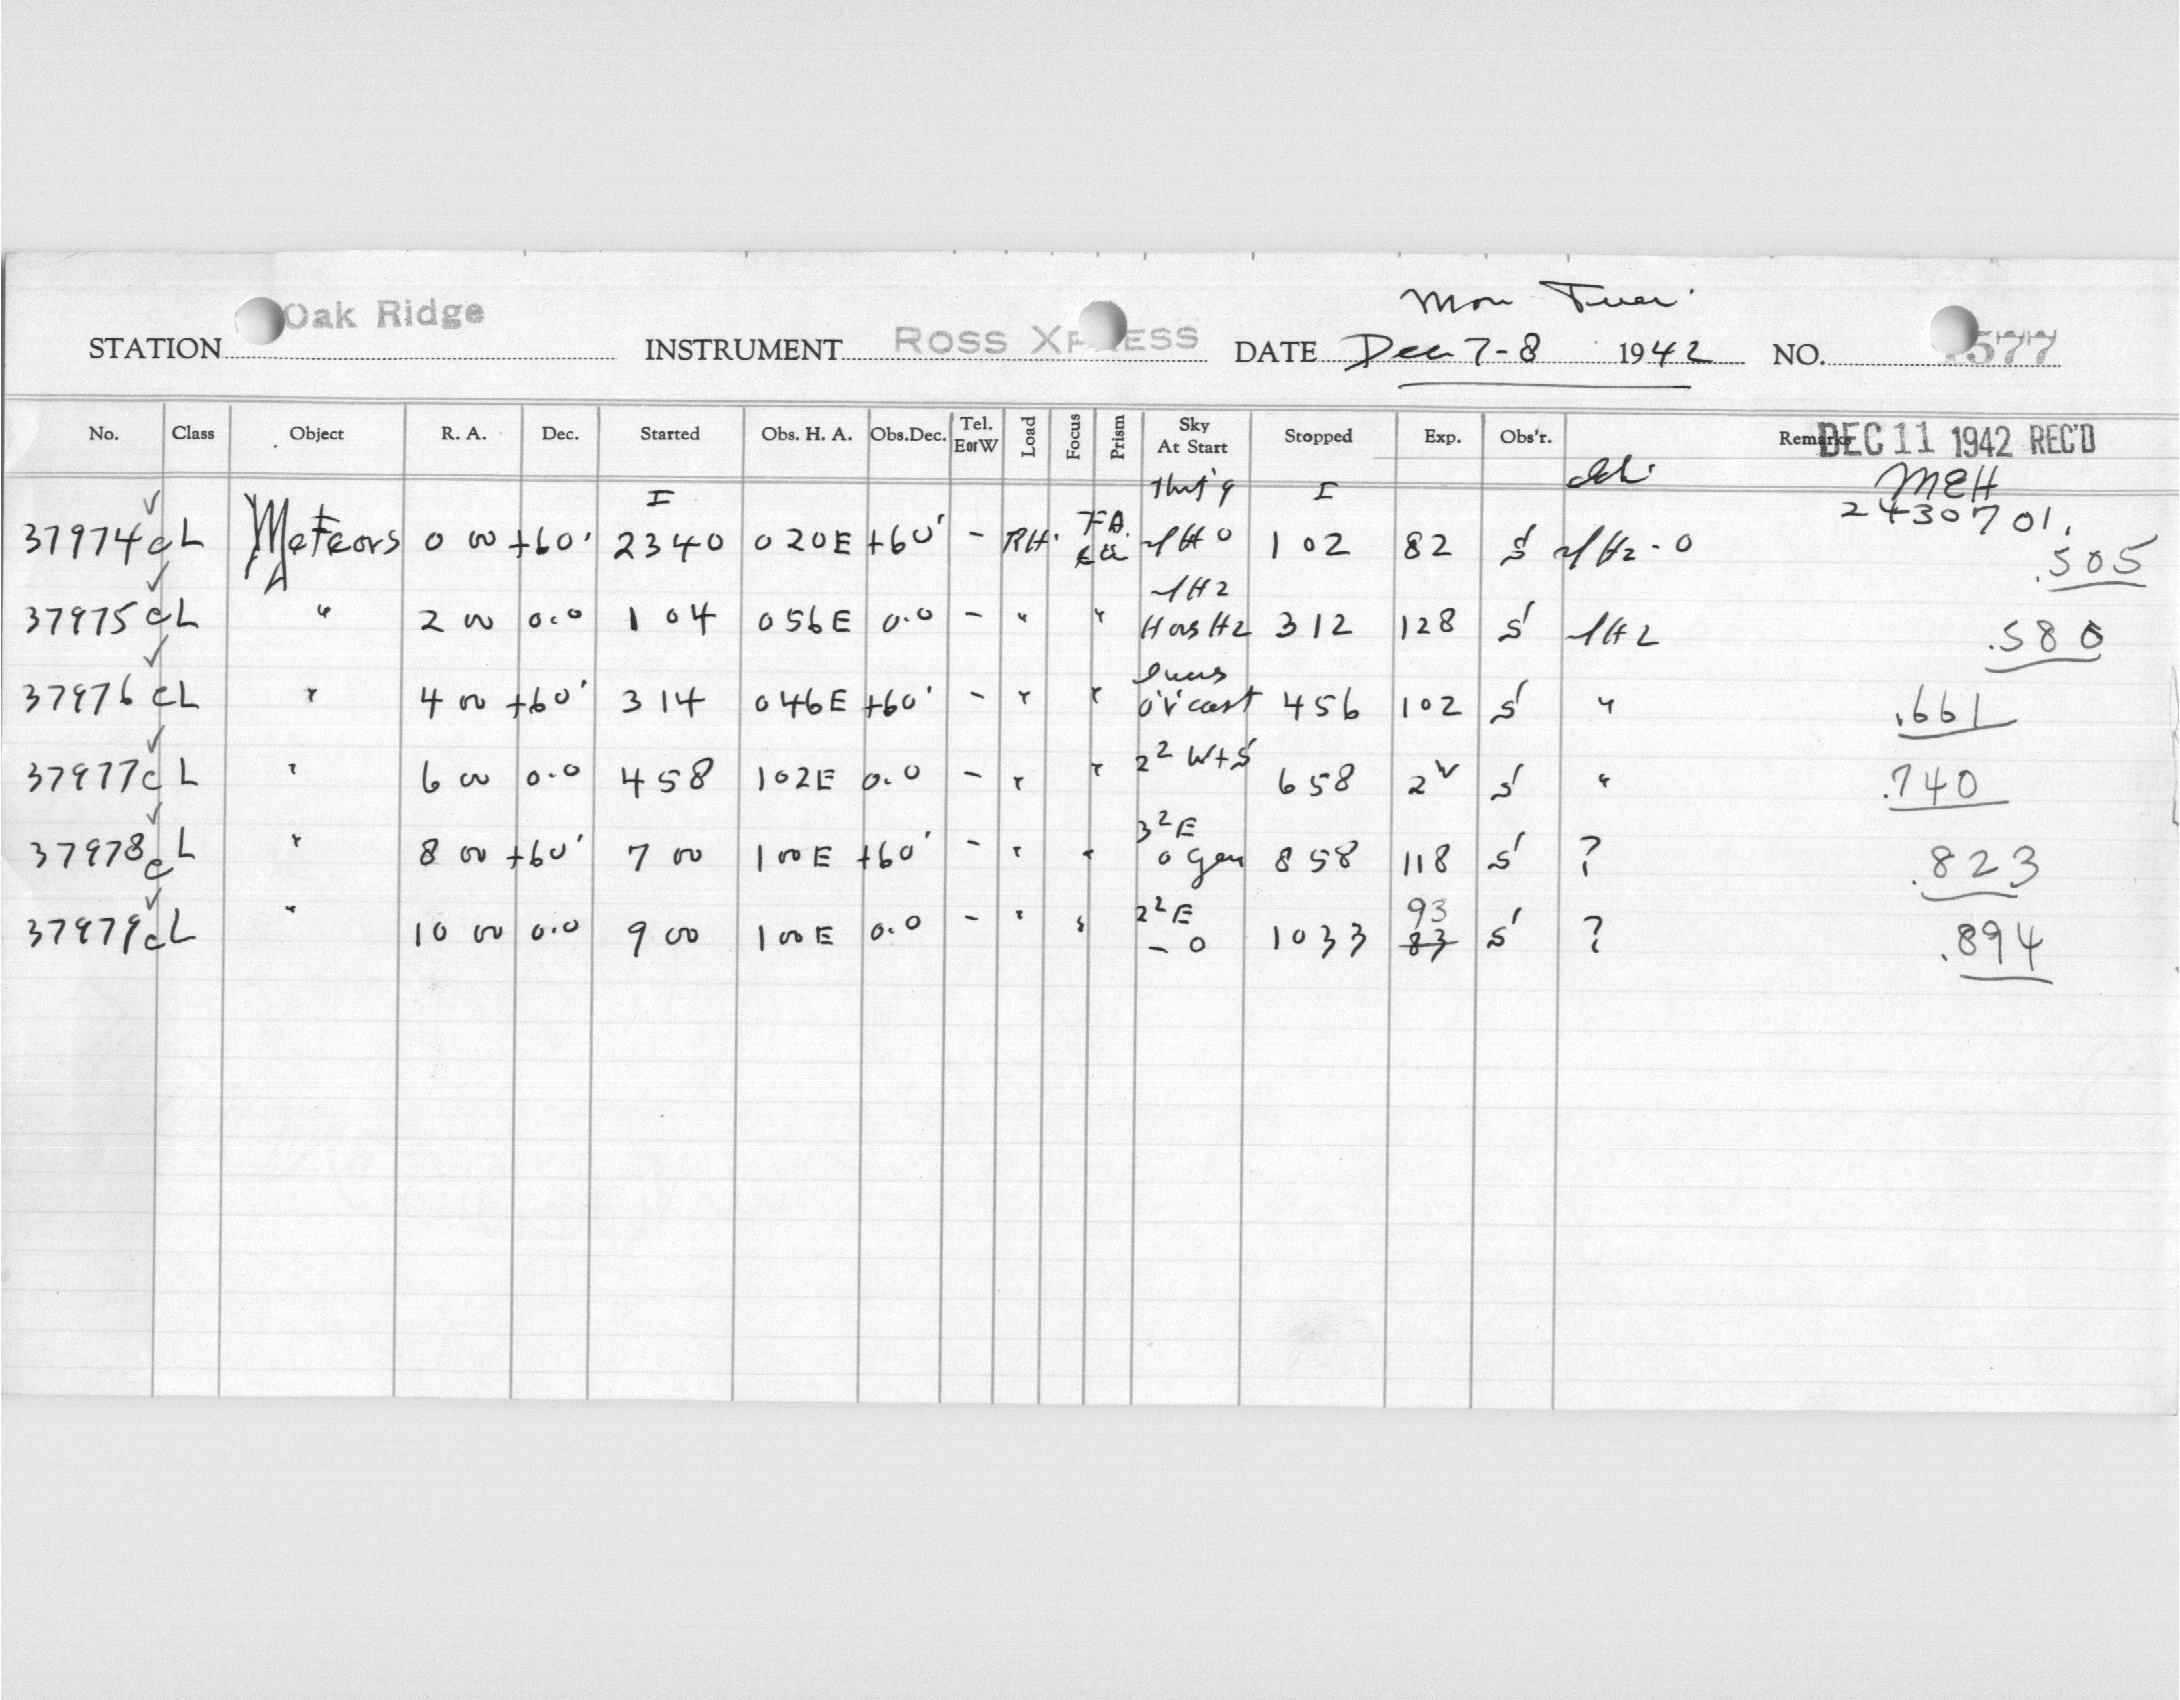 Mon Tues.
STATION Oak Ridge INSTRUMENT ROSS XPRESS DATE Dec 7-8 1942 NO. 577
No. Class Object R. A. Dec. Started Obs. H. A. Obs.Dec. Tel. EorW Load Focus Prism Sky At Start Stopped Exp. Obs'r. Remarks DEC 11 1942 REC'D
I I MEH
2430701.
37974 c L Meteors 0 00 +60° 2340 020E +60° - RH. FA. H0 102 82 S H2-0 .505
H2
37975 c L " 2 00 0.0 1 04 056E 0.0 - " " H2 312 128 S H2 .580
37976 c L " 4 00 +60° 314 046E +60° - " " o'v'cast 456 102 S " .661
37977 c L " 6 00 0.0 458 102E 0.0 - " " 2² W+S 658 2 S " .740
3²E
37978 c L " 8 00 +60° 7 00 1 00 E +60° - " " 0 Gen 858 118 S ? .823
2²E 93
37979 c L " 10 00 0.0 9 00 1 00 E 0.0 - " " - 0 1033 83 S ? .894